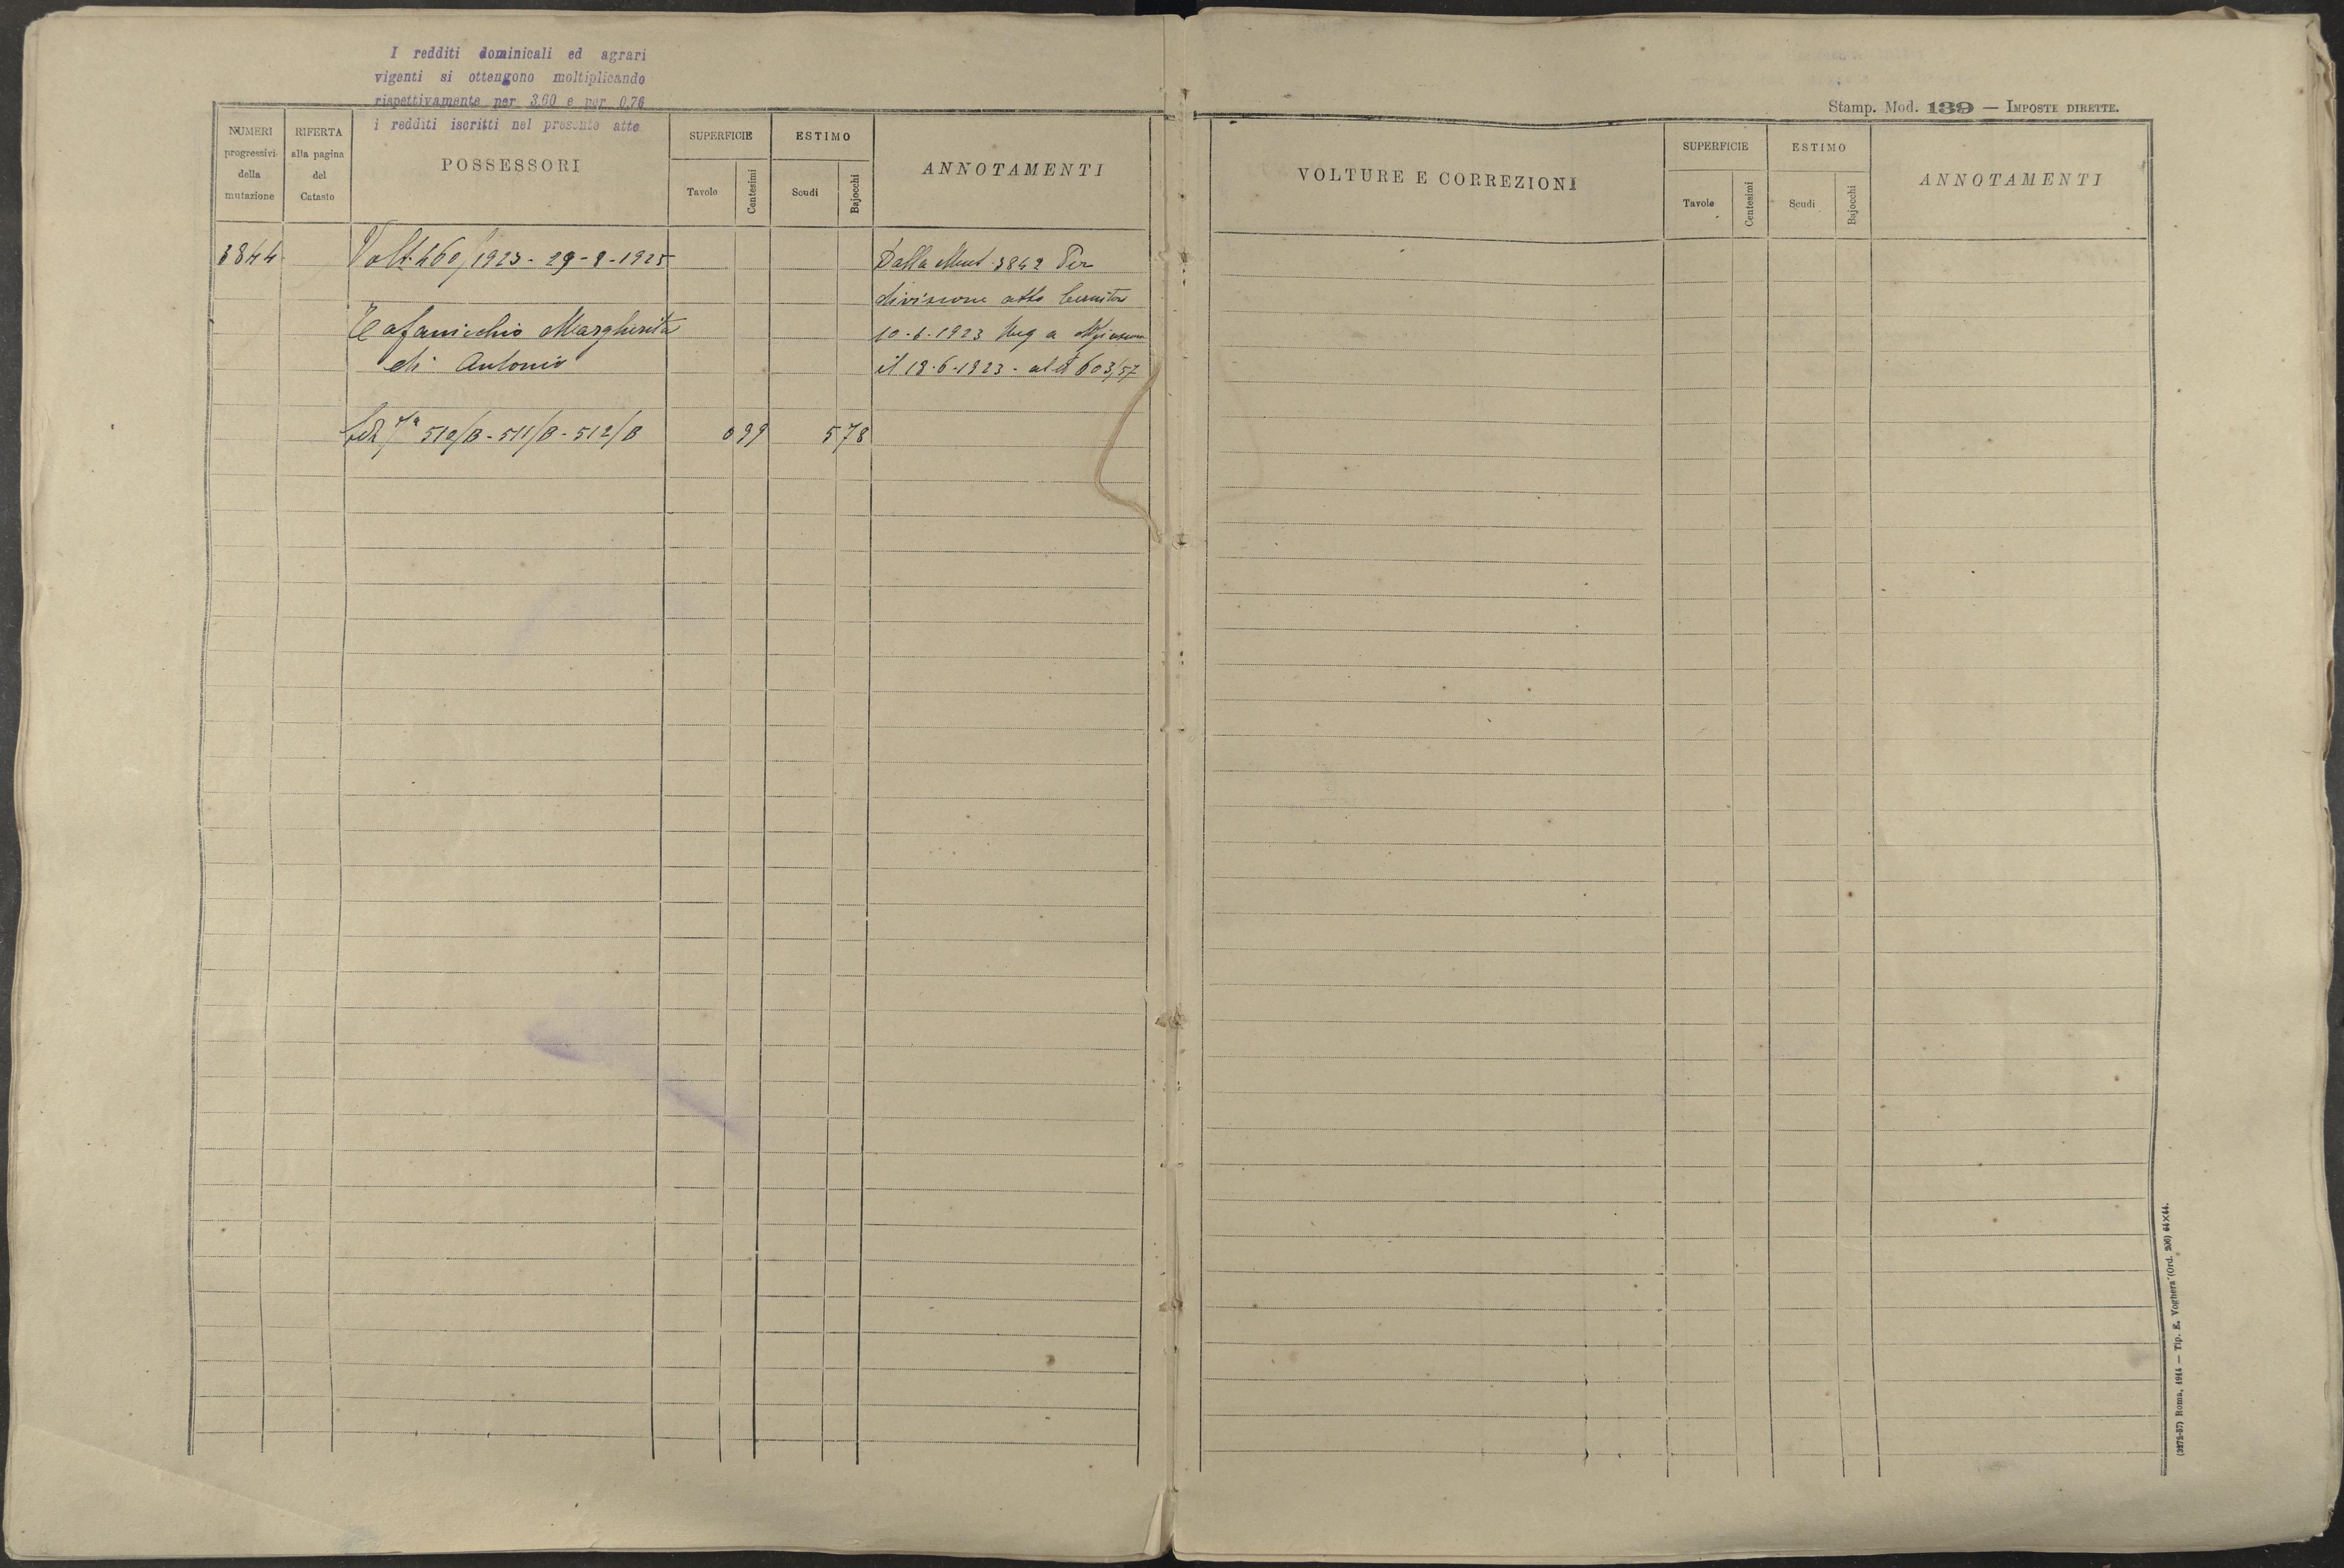 I redditi dominicali ed agrari
vigenti si ottengono moltiplicando
rispettivamente per 3,60 e per 0,76
i redditi iscritti nel presente atto
NUMERI
progressivi
della
mutazione
RIFERTA
alla pagina
del
Catasto
POSSESSORI
SUPERFICIE
Tavole
Centesimi
ESTIMO
Scudi
Bajocchi
ANNOTAMENTI
3844
Volt. 460/1923 - 29-8-1925
Dalla Mut. 3842 Per
divisione atto
Tafanicchio Margherita
10-6-1923 Reg a
di Antonio
il 18-6-1923 - al N 603/57
510/B - 511/B - 512/B
0 99
5 78
Stamp. Mod. 139 — IMPOSTE DIRETTE.
VOLTURE E CORREZIONI
SUPERFICIE
Tavole
Centesimi
ESTIMO
Scudi
Bajocchi
ANNOTAMENTI
(3272-57) Roma, 1914 — Tip. E. Voghera (Ord. 206) 64×44.